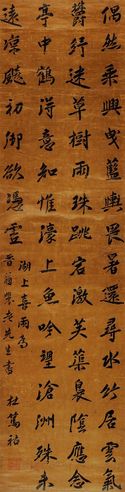 偶然乘興曳籃輿畏暑還尋水竹居雲氣
欝紆迷草樹雨珠跳宕激芙蕖陰應念
亭中鶴得意知惟濠上魚吟望滄洲殊未
遠涼飈初御欲憑虛
湖上喜雨為
晉翁老先生書 杜篤祜